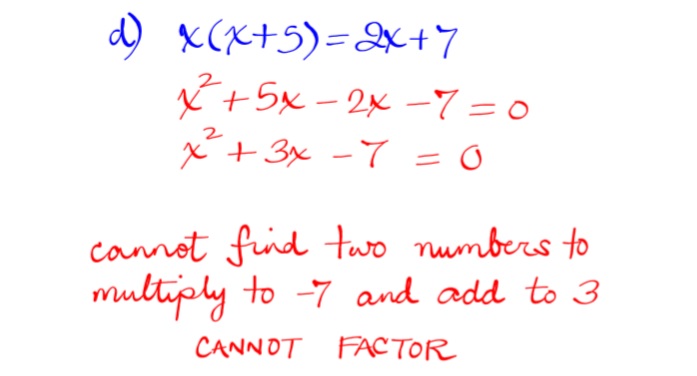 d) x(x+5)=2x+7
x²+5x-2x-7=0
x²+3x-7=0
cannot find two numbers to
multiply to -7 and add to 3
CANNOT FACTOR